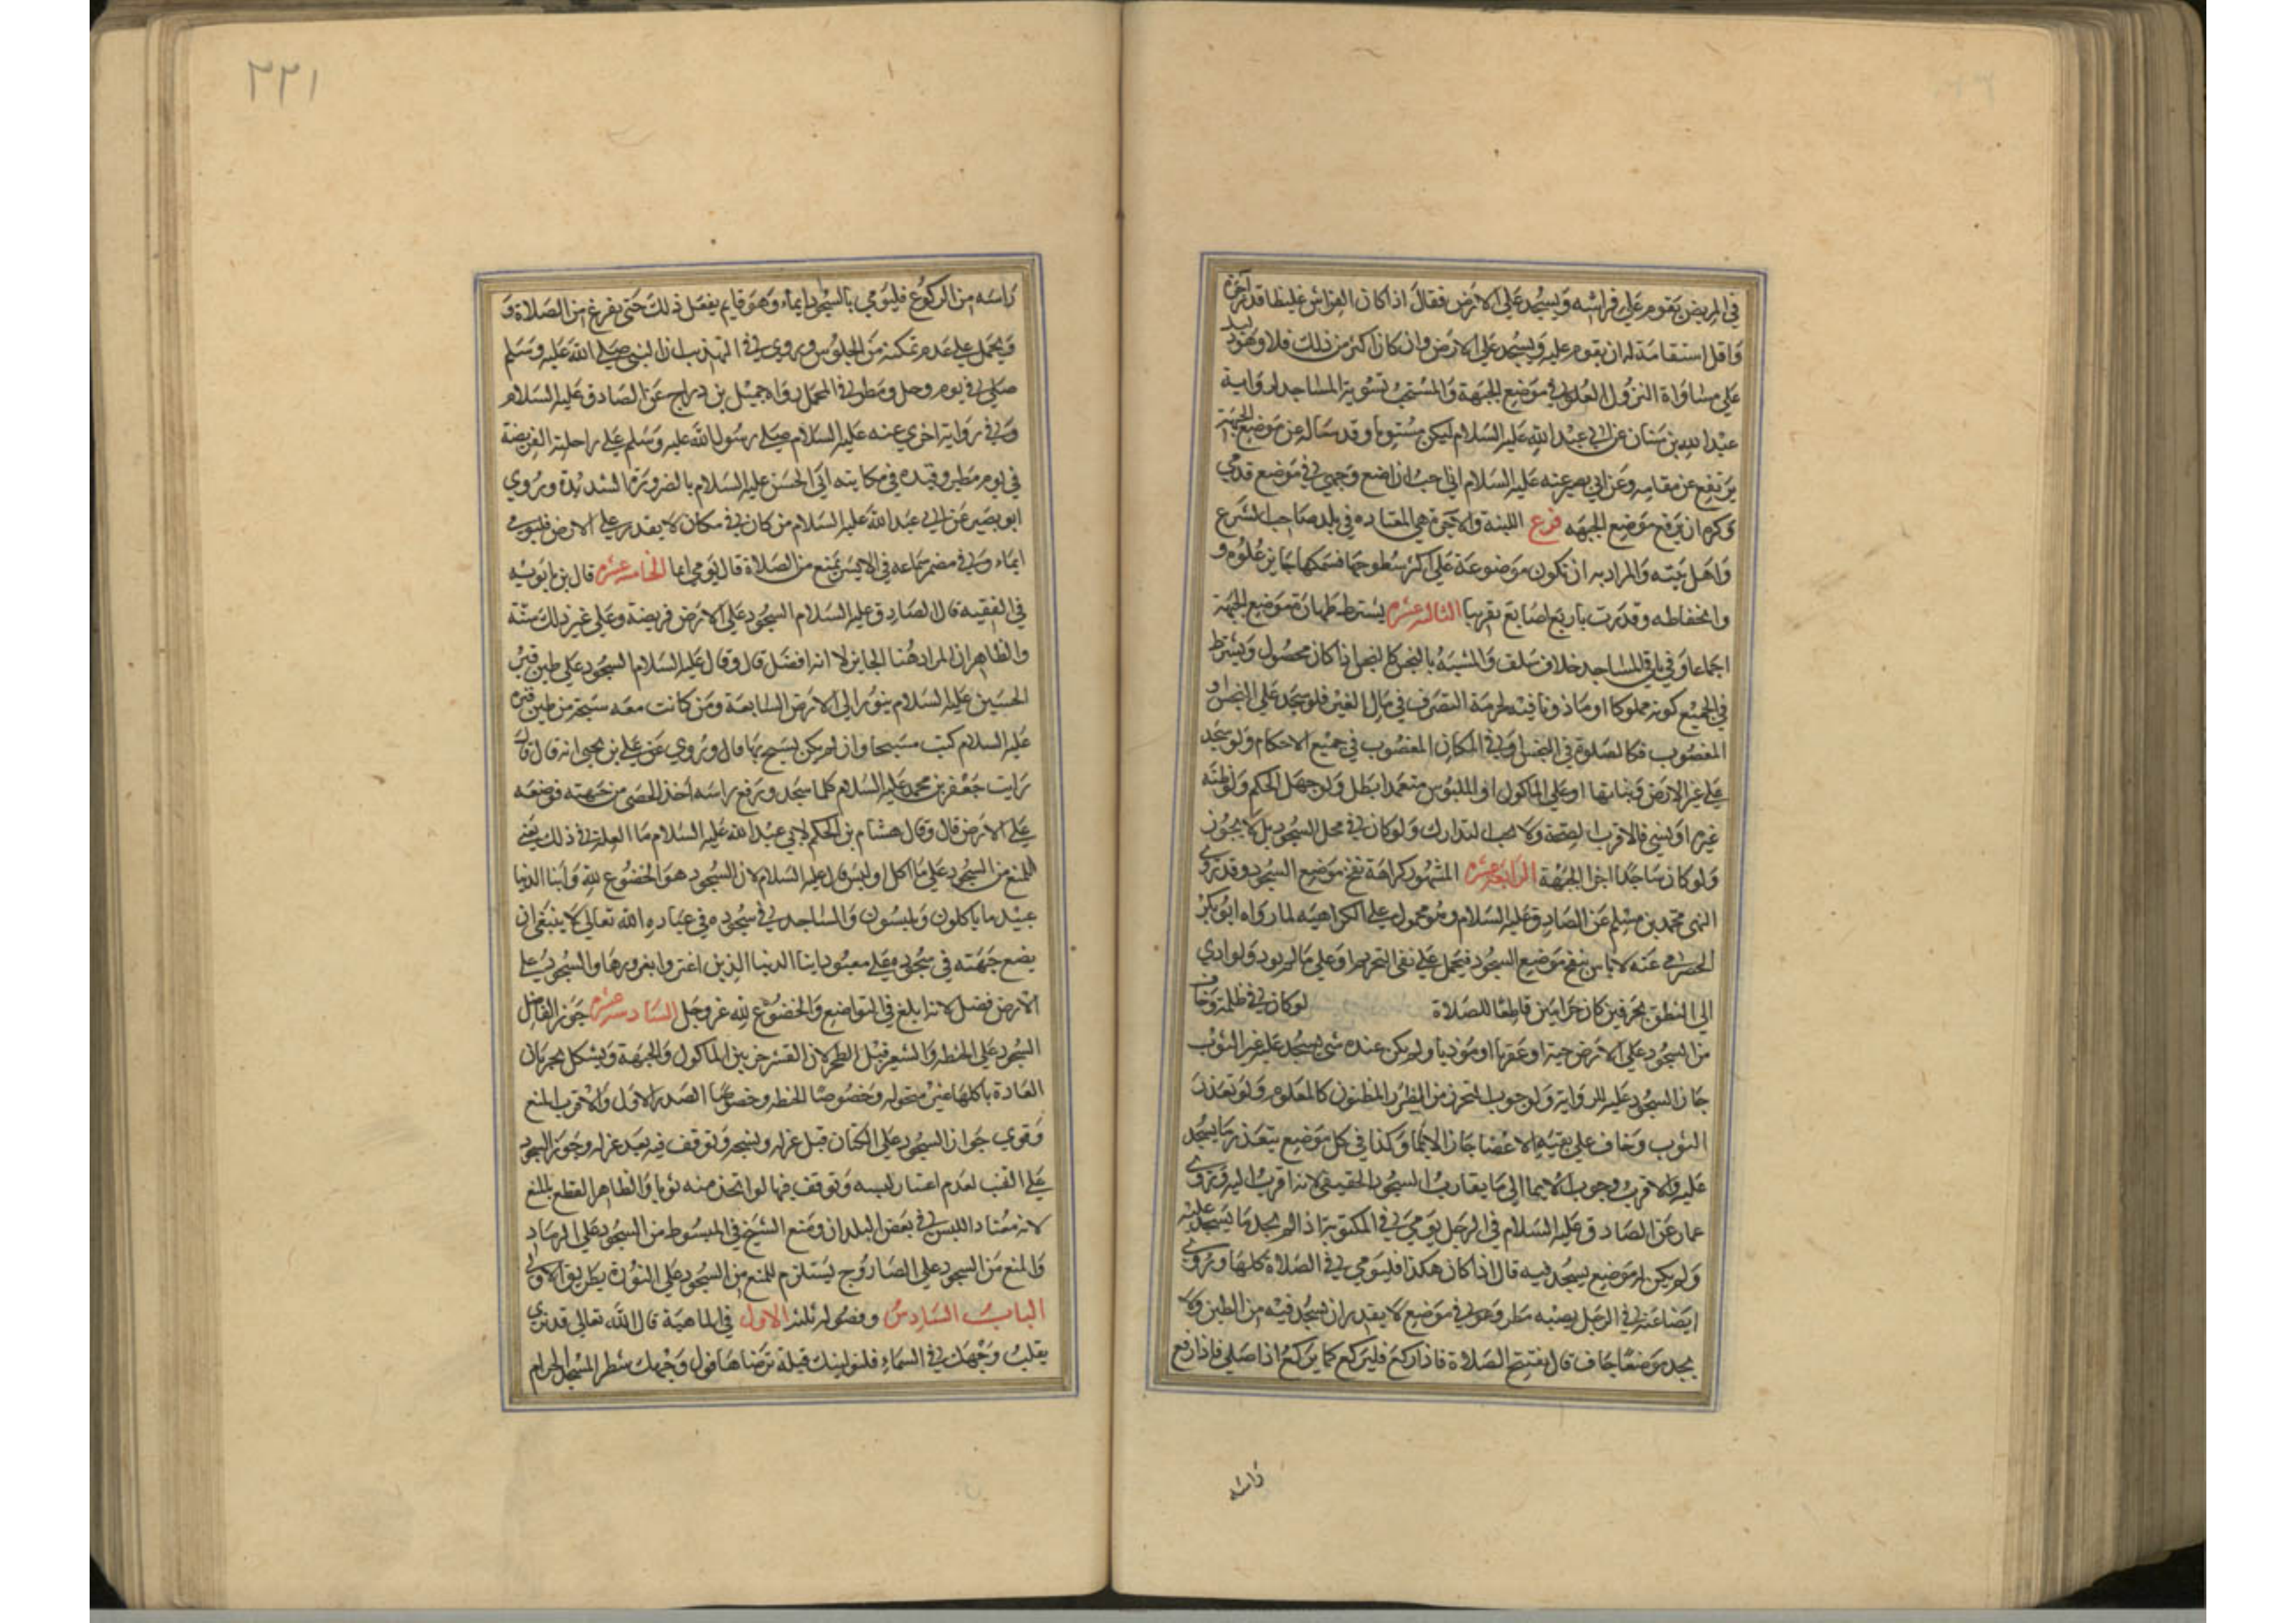 في المريض يقوم على فراشه ويسجد على الارض فقال اذا كان الفراش غليظا قدر آجرة
واقل استقام له ان يقوم عليه ويسجد على الارض وان كان اكثر من ذلك فلا وهو يدل
على مساواة النزول العلو في موضع الجبهة والمستحب تسوية المساجد لرواية
عبد الله بن سنان عن ابي عبد الله عليه السلام ليكن مستويا وقد ساله عن موضع الجبهة
يرتفع عن مقامه وعن ابي بصير عنه عليه السلام اني احب ان اضع وجهي في موضع قدمي
وكره ان يرفع موضع الجبهه فرع اللبنة والآجرة هي المعتاده في بلد صاحب الشرع
واهل بيته والمراد به ان تكون موضوعة على اكثر سطوحها فسمكها جايز علوه و
وانخفاطه وقدرت باربع اصابع تقريبا الثالثه عشره يشترط طهارة موضع الجبهة
اجماعا وفي باقي المساجد خلاف سلف والمشبه بالنجس كالنجس اذا كان محصول ويشترط
في الجميع كونه مملوكا او ماذونا فيه لحرمة التصرف في مال الغير فلو سجد على النجس او
المغصوب فكالصلوة في النجس او في المكان المغصوب في جميع الاحكام ولو سجد
على غير الارض ونباتها او على الماكول او الملبوس متعمدا بطل ولو جهل الحكم ولو ظنه
غيره او نسي فالاقرب الصحة ولا يجب التدارك ولو كان في محل السجود بل لا يجوز
ولو كان ساجدا اجرا الجبهة الرابعه عشره المشهور كراهة نفخ موضع السجود وقد روى
النهى محمد بن مسلم عن الصادق عليه السلام وهو محمول على الكراهيه لما رواه ابو بكر
الحضرمي عنه لا باس بنفخ موضع السجود فيحمل على نفى التحريم او على ما لم يوذ ولو ادي
الى النطق بحرفين كان حراما قاطعا للصلاة لو كان في ظلمة وخاف
من السجود على الارض حية او عقربا او موذيا ولم يكن عنده شي يسجد عليه غير الثوب
جاز السجود عليه للرواية ولوجوب التحرز من الضرر المظنون كالمعلوم ولو تعذر
الثوب وخاف على بقية الاعضا جاز الايما وكذا في كل موضع يتعذر ما يسجد
عليه والاقرب وجوب الايما الى ما يقارب السجود الحقيقي لانه اقرب اليه وروى
عمار عن الصادق عليه السلام في الرجل يومي في المكتوبة اذا لم يجد ما يسجد عليه
ولم يكن له موضع يسجد فيه قال اذا كان هكذا فليومي في الصلاة كلها وروى
ايضا عنه في الرجل يصيبه مطر وهو في موضع لا يقدر ان يسجد فيه من الطين ولا
يجد موضعا جاف قال يفتتح الصلاة فاذا ركع فليركع كما يركع اذا صلى فاذا رفع
راسه
٢٢١
راسه من الركوع فليومي بالسجود ايماء وهو قايم يفعل ذلك حتى يفرغ من الصلاة و
ويحمل على عدم تمكنه من الجلوس وروى في التهذيب ان النبي صلى الله عليه وسلم
صلى في يوم وحل ومطر في المحمل رواه جميل بن دراج عن الصادق عليه السلام
وفي رواية اخري عنه عليه السلام صلى رسول الله عليه وسلم على راحلته الفريضة
في يوم مطير وقيده في مكاتبته ابي الحسن عليه السلام بالضرورة الشديدة وروي
ابو بصير عن ابي عبد الله عليه السلام من كان في مكان لا يقدر على الارض فليومى
ايماء وفي مضمر سماعه في الاسير يمنع من الصلاة قال يومي ايما الخامسه عشره قال بن بابويه
في الفقيه قال الصادق عليه السلام السجود على الارض فريضة وعلى غير ذلك سنة
والظاهر ان المراد هنا الجايز لا انه افضل قال وقال عليه السلام السجود على طين قبر
الحسين عليه السلام ينور الى الارض السابعة ومن كانت معه سبحة من طين قبره
عليه السلام كتب مسبحا وان لم يكن يسبح بها قال وروي عن علي بن يحيى انه قال قال
رايت جعفر بن محمد عليه السلام كلما سجد ورفع راسه اخذ الحصى من جبهته فوضعه
على الارض قال وقال هشام بن الحكم لابي عبد الله عليه السلام ما العلة في ذلك يعني
المنع من السجود على ما اكل او لبس قال عليه السلام لان السجود هو الخضوع لله وابنا الدنيا
عبيد ما ياكلون ويلبسون والساجد في سجوده في عباده الله تعالى لا ينبغي ان
يضع جبهته في سجوده على معبود ابنا الدنيا الذين اغتروا بغرورها والسجود على
الارض فضل لانه ابلغ في التواضع والخضوع لله عز وجل السادسه عشره جوز الفاضل
السجود على الحنطه والشعير قبل الطحن لان القشر خز بين الماكول والجبهة ويشكل بجريان
العادة باكلها غير منخوله وخصوصا الحنطه وخصوصا الصدر الاول والاقرب المنع
وقوى جواز السجود على الكتان قبل غزله ونسجه وتوقف فيه بعد غزله وجوز السجود
على القنب لعدم اعتبار لبسه وتوقف فيما لو اتخذ منه ثوبا والظاهر القطع بالمنع
لانه معتاد اللبس في بعض البلدان ومنع الشيخ في المبسوط من السجود على الرماد
والمنع من السجود على الصاروج يستلزم المنع من السجود على النورة بطريق الاولى
الباب السادس وفصوله ثلثه الاول في الماهية قال الله تعالى قد نرى
يقلب وجهك في السماء فلنولينك قبلة ترضاها فول وجهك شطر المسجد الحرام